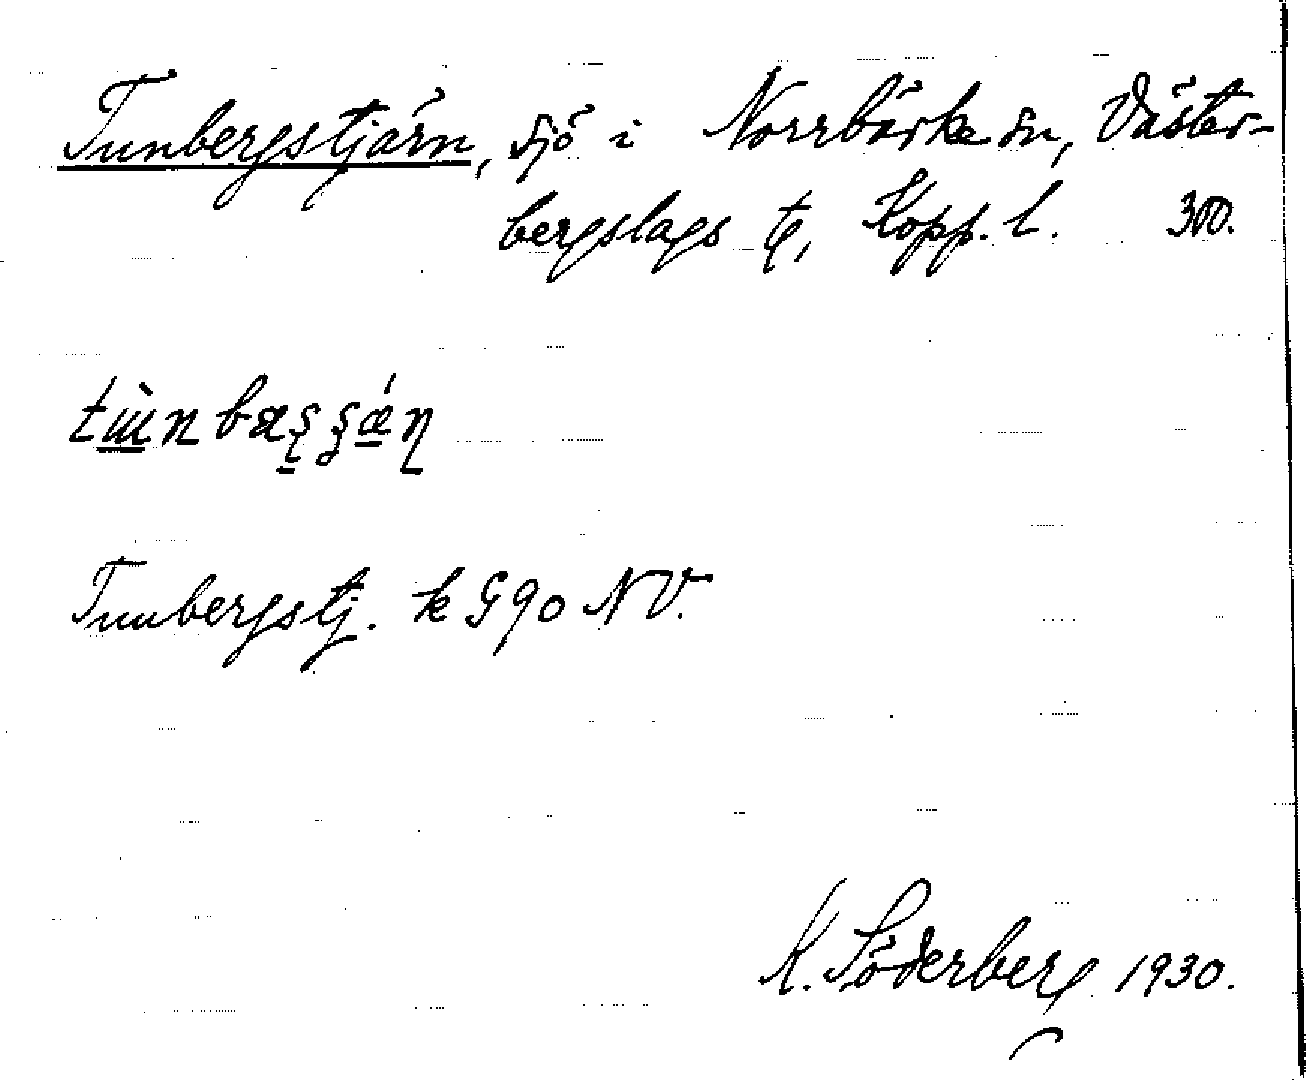 Tunbergstjärn, sjö i Norrbärke sn, Väster-
bergslags tg, Kopp. l. 300.
Tunbergstj. k G90 NV.
K. Söderberg 1930.